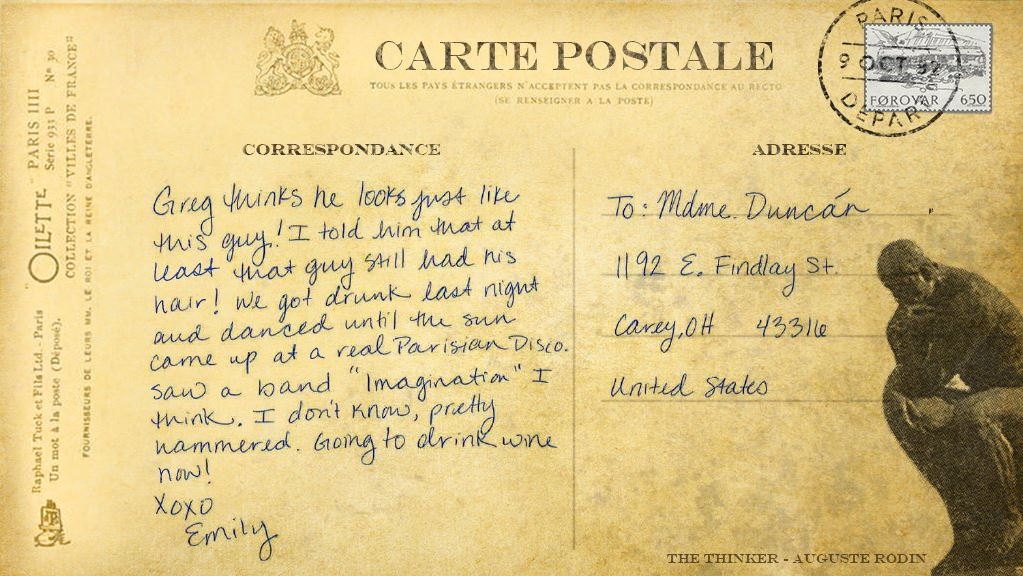 CARTE POSTALE
TOUS LES PAYS ÉTRANGERS N'ACCEPTENT PAS LA CORRESPONDANCE AU RECTO
(SE RENSEIGNER A LA POSTE)
PARIS
9 OCT 52
DEPART
FØROYAR 650
OILETTE" PARIS IIII
Serie 933 P Nº 30
COLLECTION "VILLES DE FRANCE"
Raphael Tuck et Fils Ltd. - Paris
Un mot à la poste (Déposé).
FOURNISSEURS DE LEURS MM. LE ROI ET LA REINE D'ANGLETERRE.
CORRESPONDANCE
Greg thinks he looks just like
this guy! I told him that at
least that guy still had his
hair! We got drunk last night
and danced until the sun
came up at a real Parisian Disco.
Saw a band "Imagination" I
think. I don't know, pretty
hammered. Going to drink wine
now!
XOXO
Emily
ADRESSE
To: Mdme. Duncán
1192 E. Findlay St.
Carey, OH 43316
United States
THE THINKER - AUGUSTE RODIN